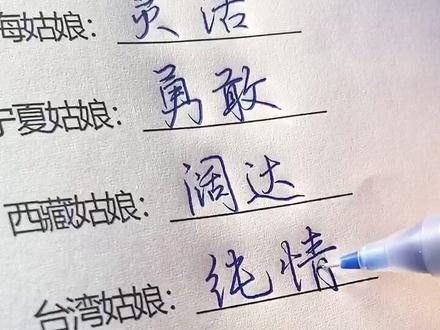 海姑娘：灵活
宁夏姑娘：勇敢
西藏姑娘：阔达
台湾姑娘：纯情